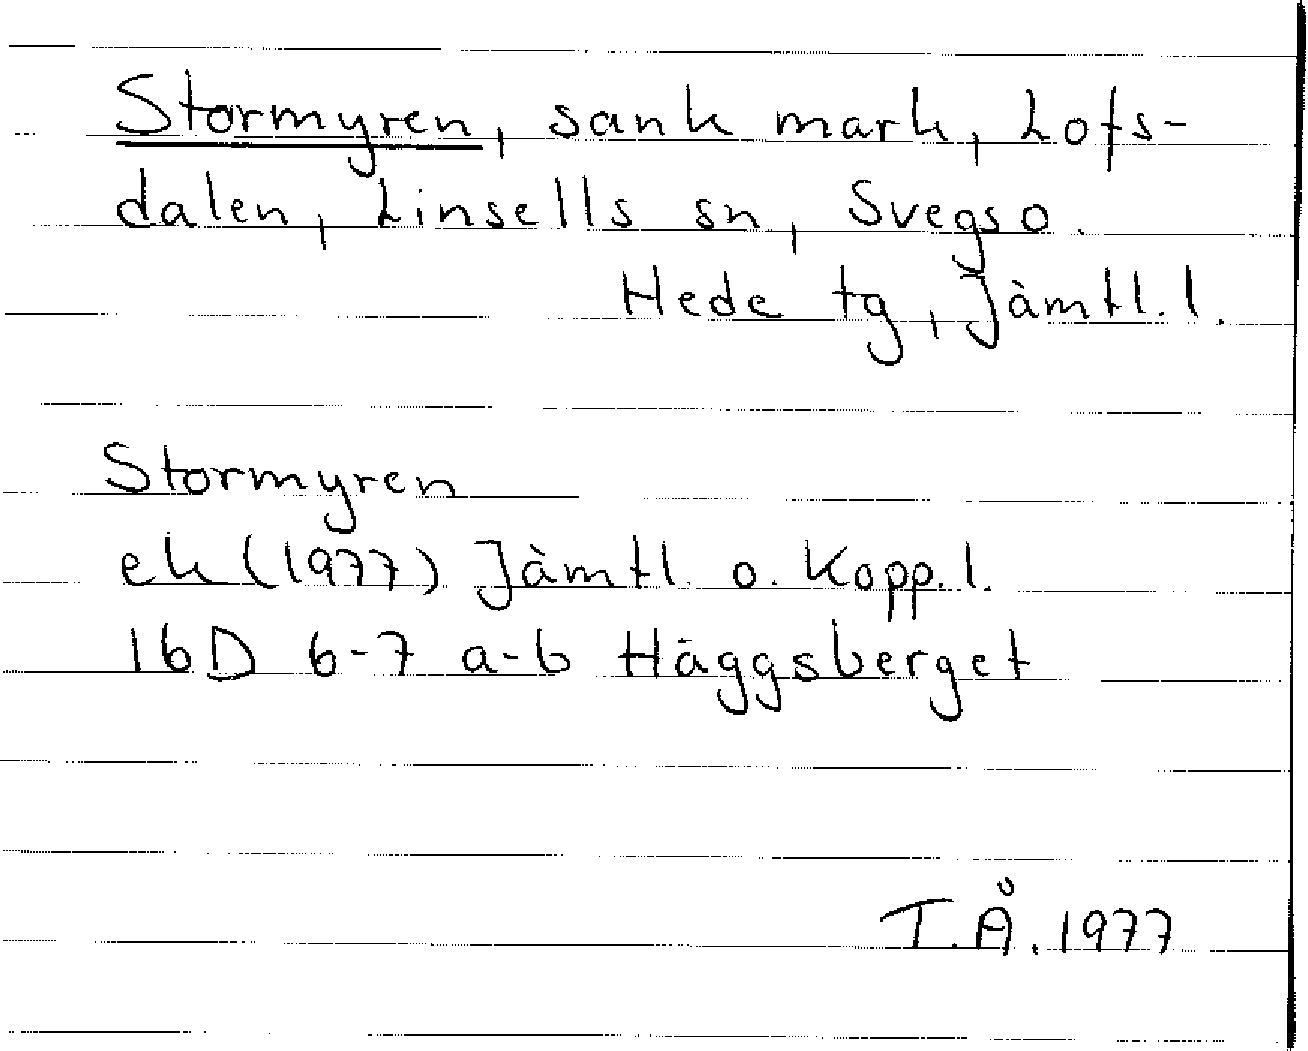 Stormyren, sank mark, Lofs-
dalen, Linsells sn, Svegs o.
Hede tg, Jämtl. l.
Stormyren
ek (1977) Jämtl. o. Kopp. l.
16D 6-7 a-b Häggsberget
T.Å. 1977